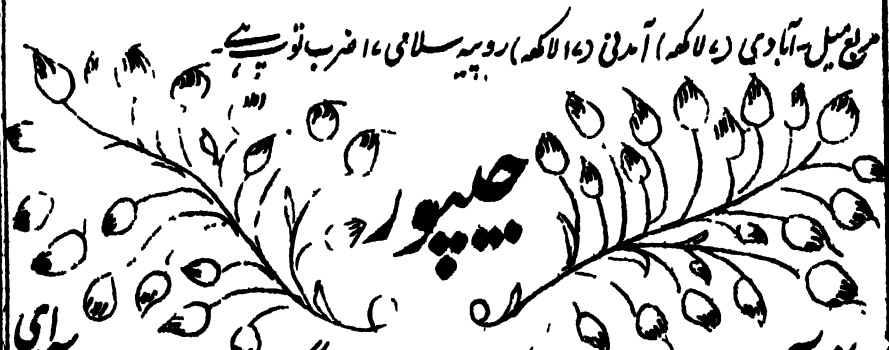 مربع میل۔ آبادی (۷ لاکھ) آمدنی (۱۷ لاکھ) روپیہ سلامی ۱۷ ضرب توپ ہے۔
جیپور
امی